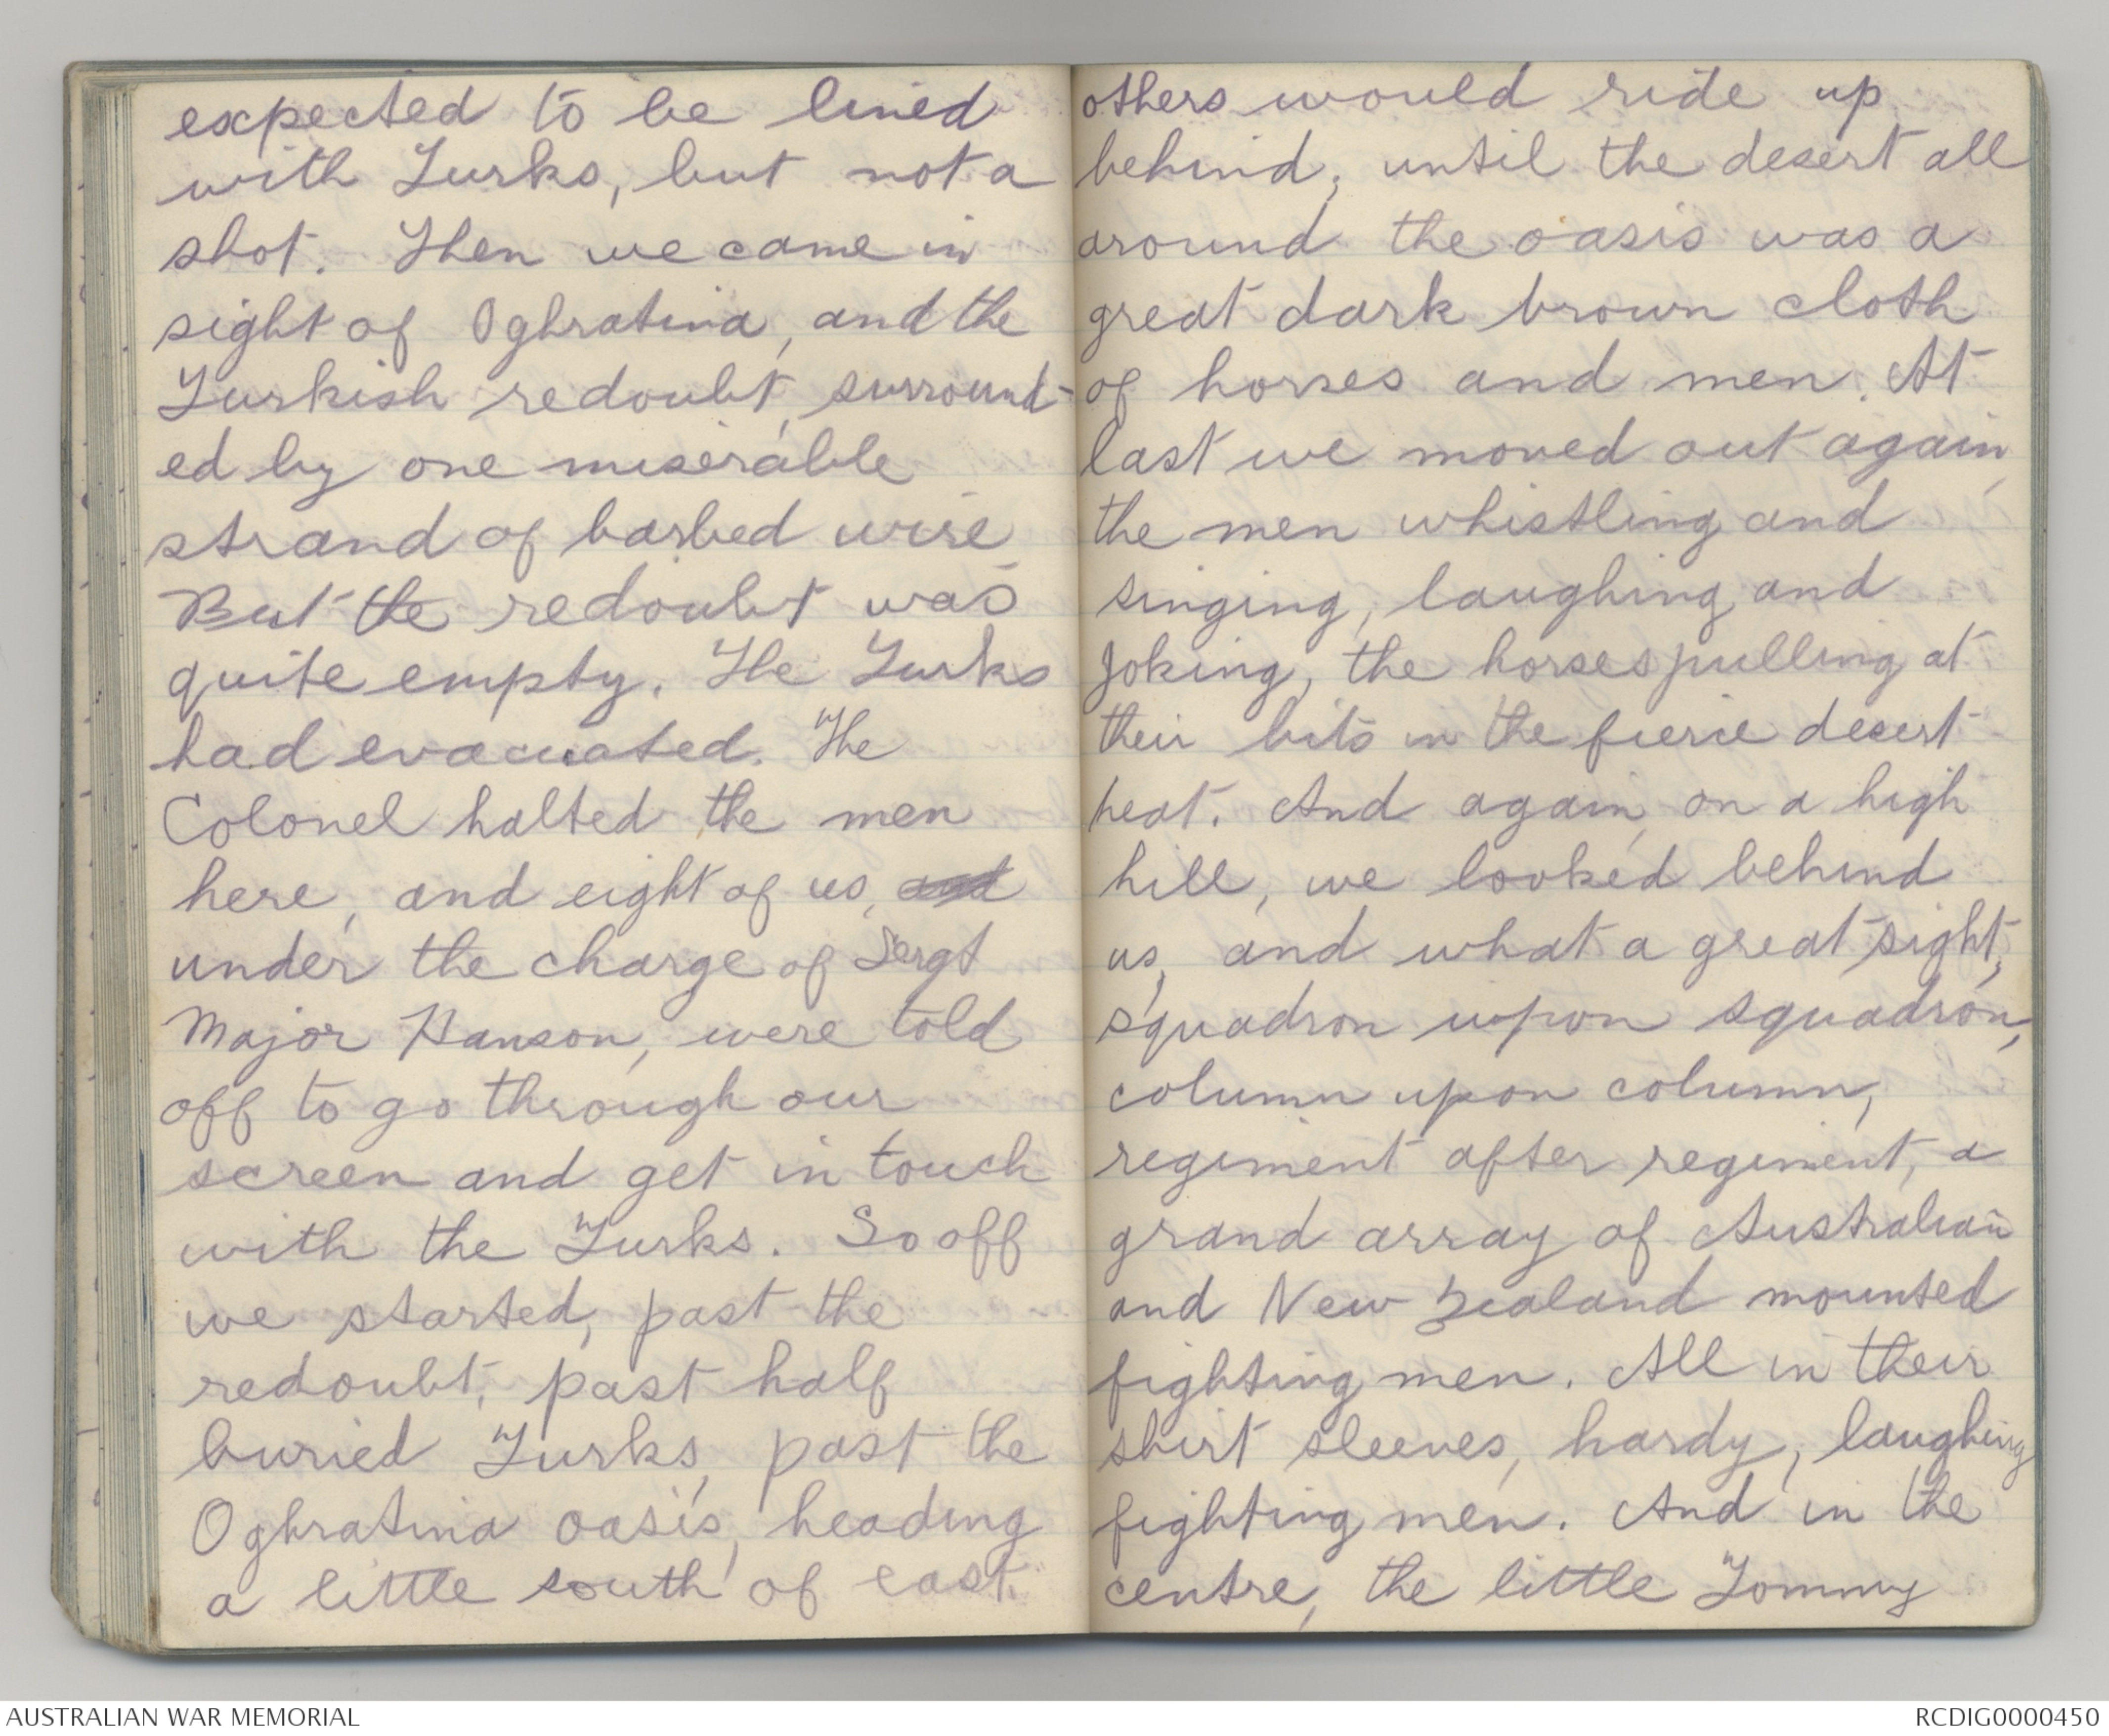 expected to be lined
with Turks, but not a
shot. Then we came in
sight of Oghratina, and the
Turkish redoubt, surround-
ed by one miserable
strand of barbed wire
But the redoubt was
quite empty. The Turks
had evacuated. The
Colonel halted the men
here, and eight of us, and
under the charge of Sergt
Major Hanson, were told
off to go through our
screen and get in touch
with the Turks. So off
we started, past the
redoubt, past half
buried Turks, past the
Oghratina oasis, heading
a little south of east.
others would ride up
behind, until the desert all
around the oasis was a
great dark brown cloth
of horses and men. At
last we moved out again,
the men whistling and
singing, laughing and
joking, the horses pulling at
their bits in the fierce desert
heat. And again, on a high
hill, we looked behind
us, and what a great sight,
squadron upon squadron,
column upon column,
regiment after regiment, a
grand array of Australian
and New Zealand mounted
fighting men. All in their
shirt sleeves, hardy, laughing
fighting men. And in the
centre, the little Tommy
AUSTRALIAN WAR MEMORIAL
RCDIG0000450